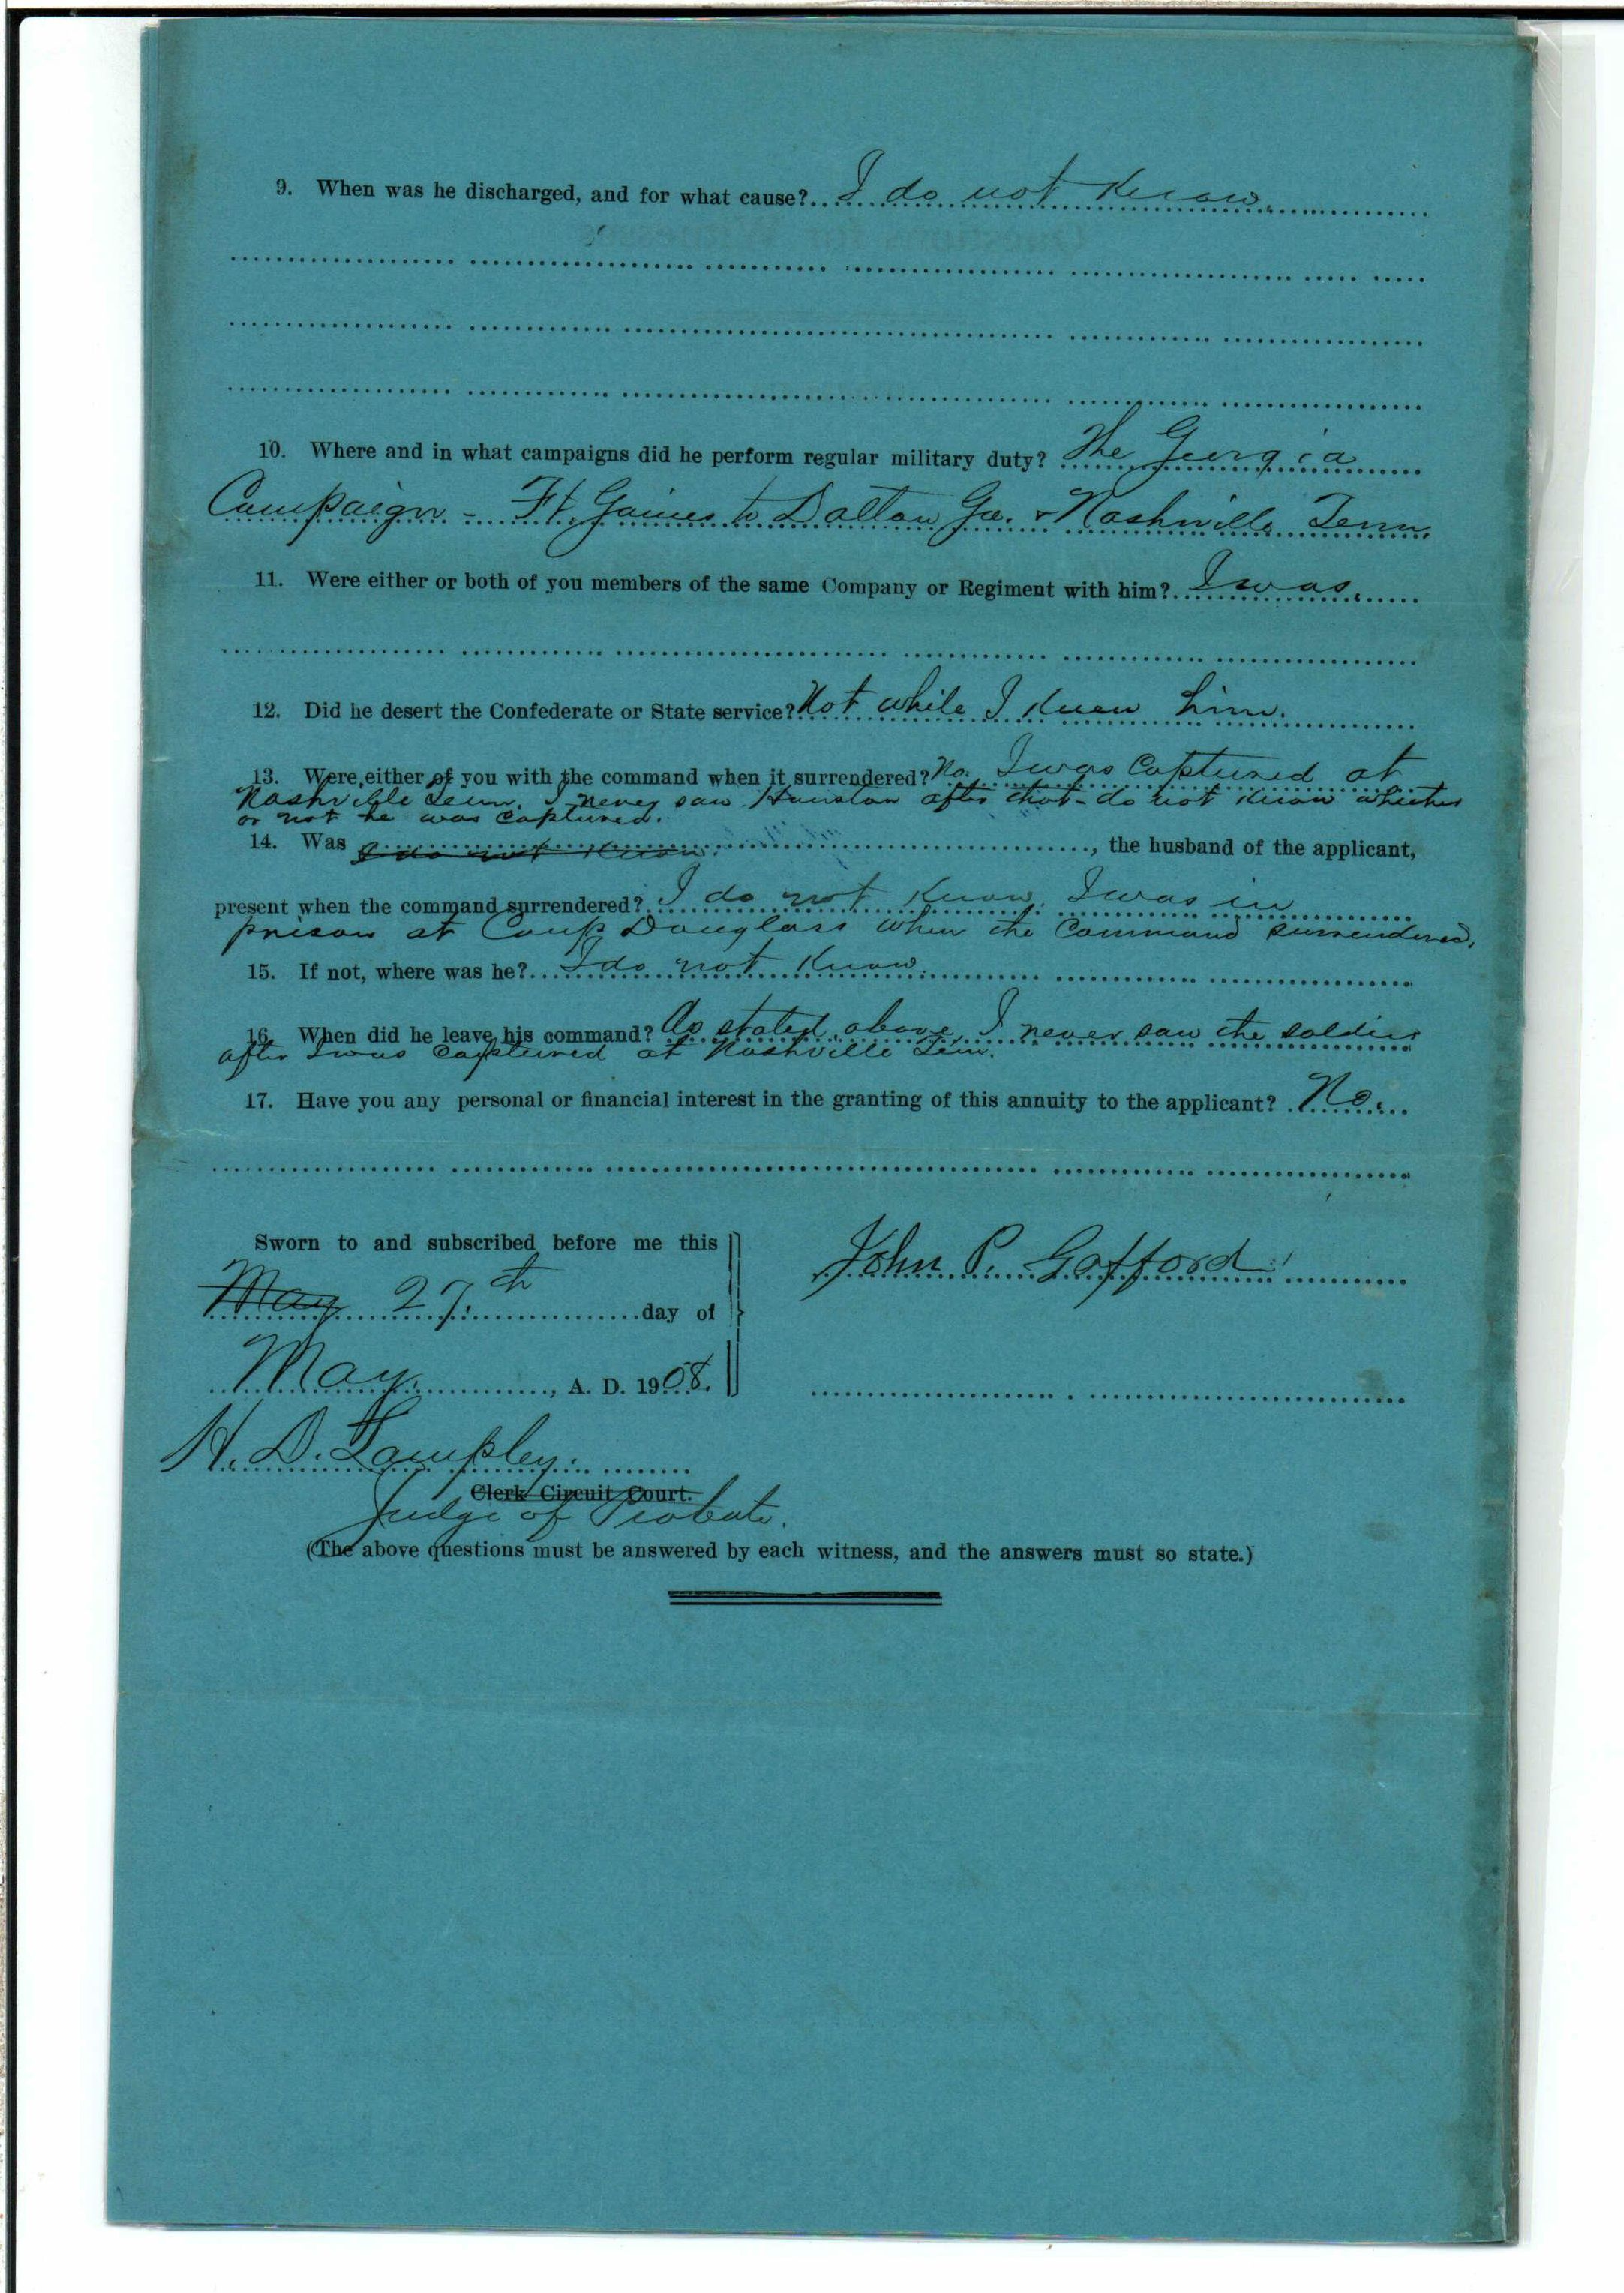 9. When was he discharged, and for what cause? I do not know.
10. Where and in what campaigns did he perform regular military duty? The Georgia
Campaign - Ft Gaines to Dalton Ga. & Nashville Tenn.
11. Were either or both of you members of the same Company or Regiment with him? I was.
12. Did he desert the Confederate or State service? Not while I knew him.
13. Were either of you with the command when it surrendered? No. I was Captured at
Nashville Tenn. I never saw after that - do not know whether
or not he was captured.
14. Was I do not know. , the husband of the applicant,
present when the command surrendered? I do not know. I was in
prison at Camp Douglass when the Command surrendered.
15. If not, where was he? I do not know.
16. When did he leave his command? As stated above, I never saw the soldier
after I was Captured at Nashville Tenn.
17. Have you any personal or financial interest in the granting of this annuity to the applicant? No.
Sworn to and subscribed before me this
May 27th day of
May, A. D. 1908.
John P. Gafford
H. D. Lampley.
Clerk Circuit Court.
Judge of Probate.
(The above questions must be answered by each witness, and the answers must so state.)